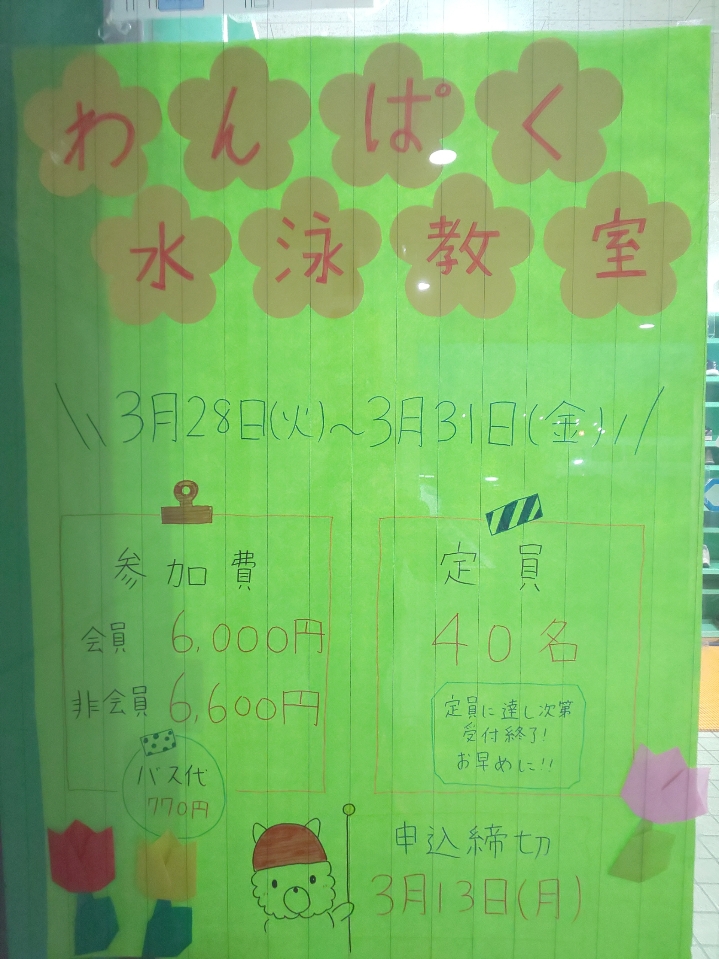 わんぱく
水泳教室
\\ 3月28日(火)~3月31日(金) //
参加費
会員 6,000円
非会員 6,600円
バス代
770円
定員
40名
定員に達し次第
受付終了!
お早めに!!
申込締切
3月13日(月)